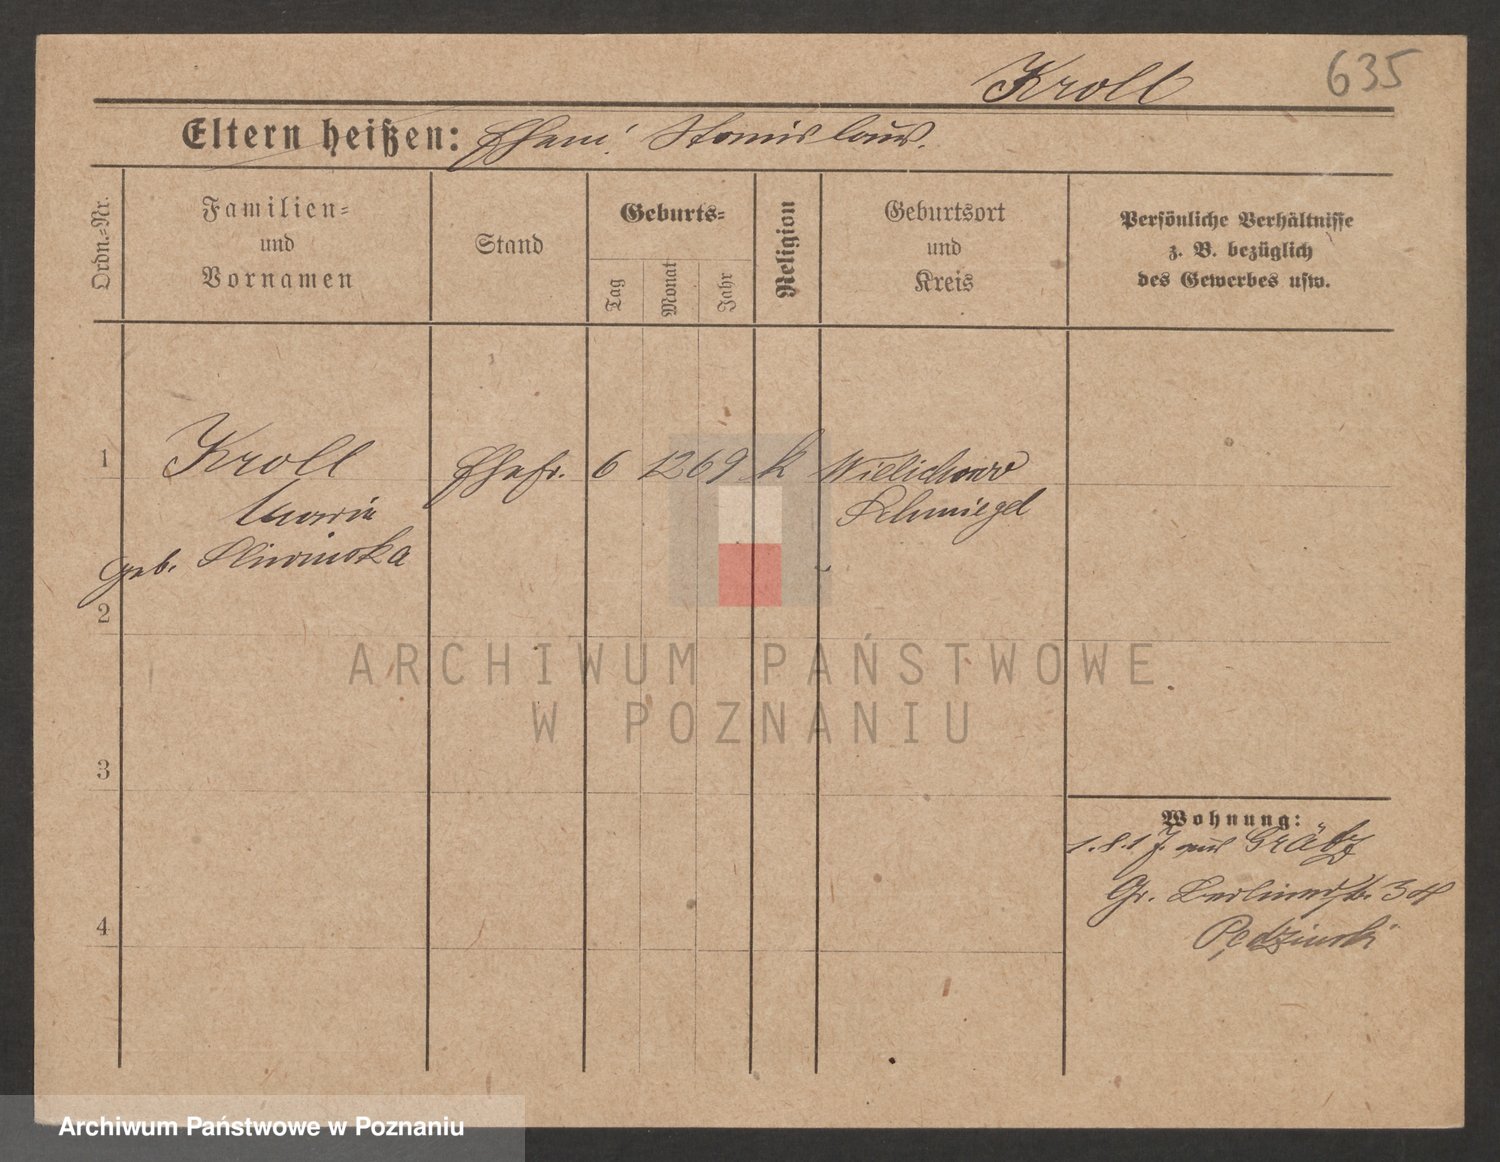 Kroll 635
Eltern heißen: Ehem: Stanislaus.
Ordn.-Nr.
Familien-
und
Vornamen
Stand
Geburts-
Tag
Monat
Jahr
Religion
Geburtsort
und
Kreis
Persönliche Verhältnisse
z. B. bezüglich
des Gewerbes usw.
1 Kroll Ehefr. 6 12 69 k Wielichowo
Maria Schmiegel
geb. Sliwinska
2
3
4
Wohnung:
1.8.1 aus Grätz
Gr. Berlinerstr. 34
Pędzinski
ARCHIWUM PAŃSTWOWE
W POZNANIU
Archiwum Państwowe w Poznaniu